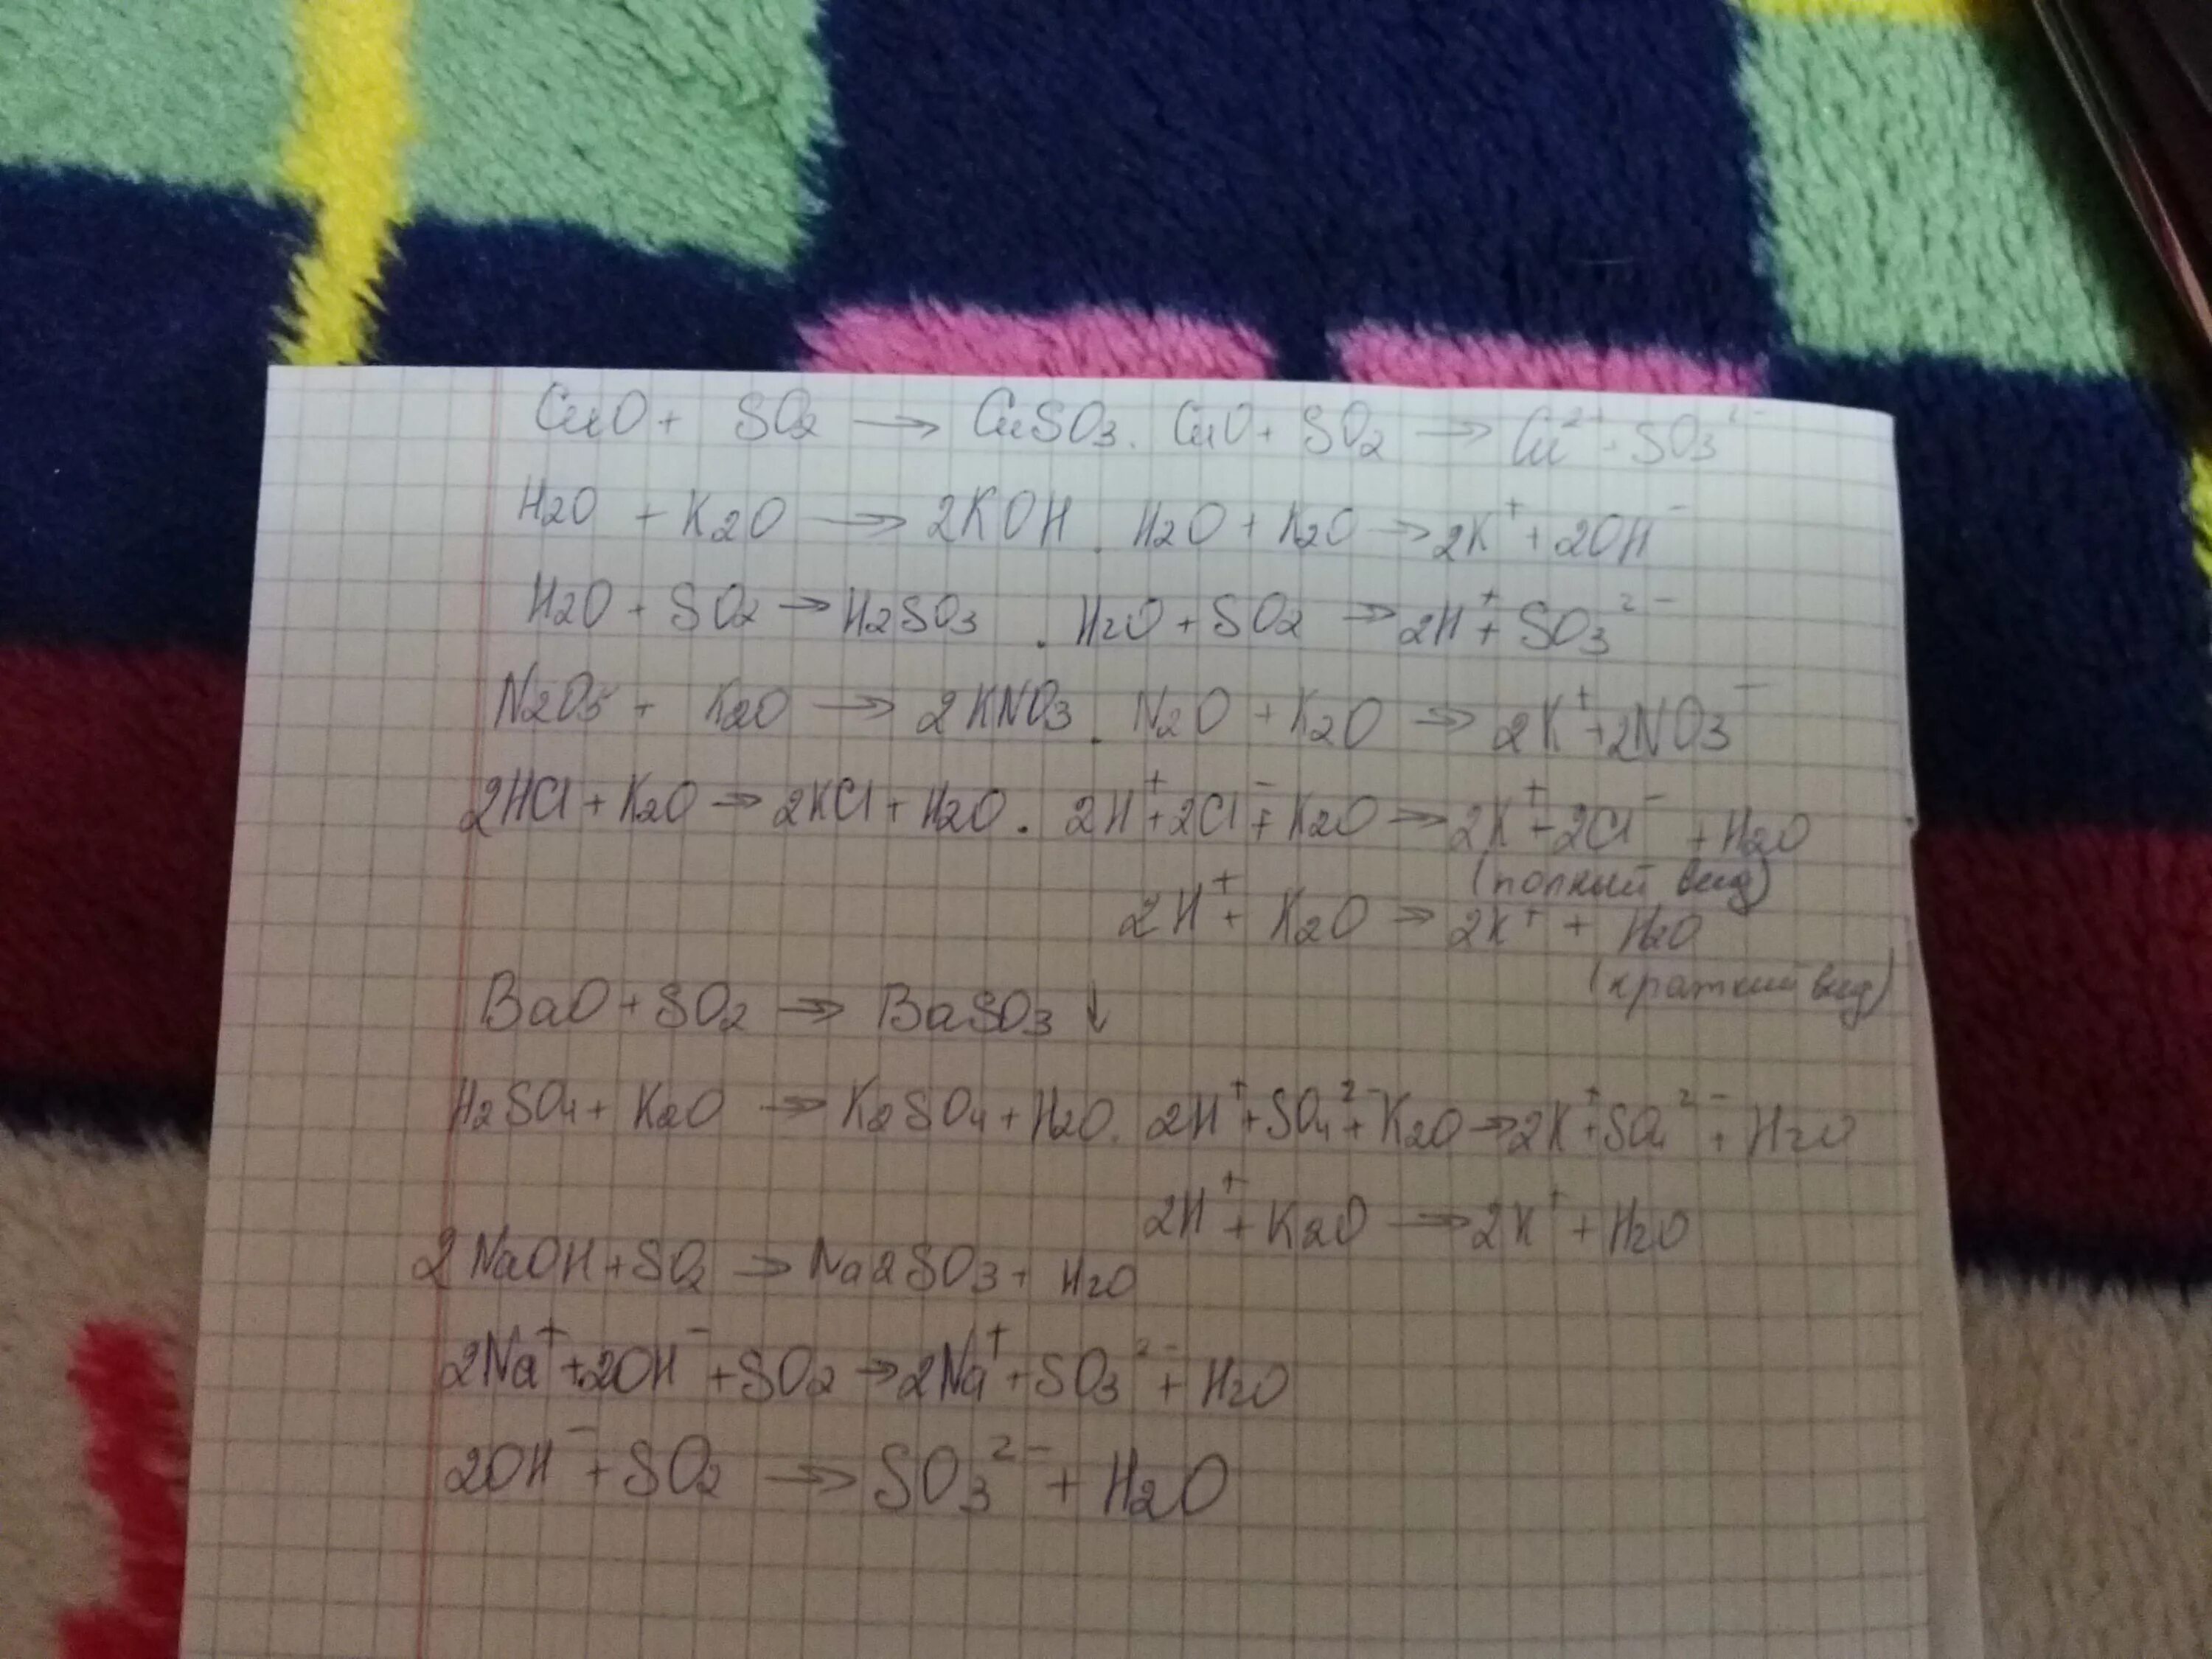 CuO + SO2 → CuSO3. CuO + SO2 → Cu²⁺ + SO3²⁻
H2O + K2O → 2KOH. H2O + K2O → 2K⁺ + 2OH⁻
H2O + SO2 → H2SO3. H2O + SO2 → 2H⁺ + SO3²⁻
N2O5 + K2O → 2KNO3. N2O + K2O → 2K⁺ + 2NO3⁻
2HCl + K2O → 2KCl + H2O. 2H⁺ + 2Cl⁻ + K2O → 2K⁺ + 2Cl⁻ + H2O
(полный вид)
2H⁺ + K2O → 2K⁺ + H2O
(краткий вид)
BaO + SO2 → BaSO3 ↓
H2SO4 + K2O → K2SO4 + H2O. 2H⁺ + SO4²⁻ + K2O → 2K⁺ + SO4²⁻ + H2O
2H⁺ + K2O → 2K⁺ + H2O
2NaOH + SO2 → Na2SO3 + H2O
2Na⁺ + 2OH⁻ + SO2 → 2Na⁺ + SO3²⁻ + H2O
2OH⁻ + SO2 → SO3²⁻ + H2O